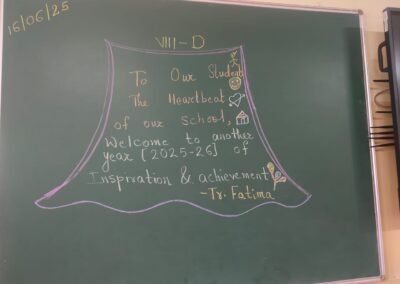 16/06/25
VIII-D
To Our Students
The Heartbeat
of our school,
Welcome to another
year [2025-26] of
Inspiration & achievement
-Tr. Fatima
VIII-D